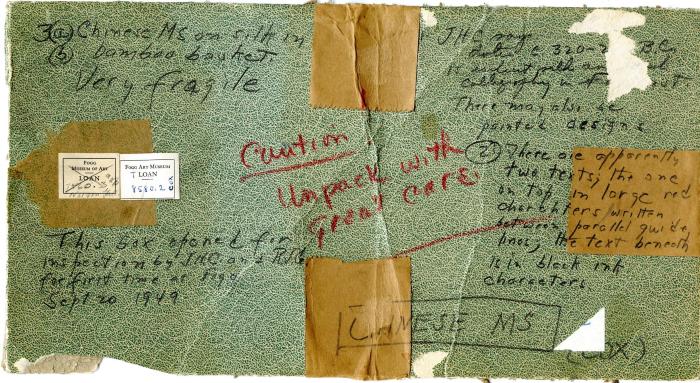 3(a) Chinese MS on silk in
(b) bamboo basket.
Very fragile
FOGG
MUSEUM OF ART
LOAN
FOGG ART MUSEUM
T LOAN
8580.2
COX
This box opened for
inspection by JHC and
for first time at Fogg
Sept 20 1949
Caution!
Unpack with
Great care.
JHC says
B.C.
There may also be
painted designs
(2) there are apparently
two texts; the one
on top in large red
characters written
between parallel guide
lines; the text beneath
is in black ink
characters
CHINESE MS
(COX)